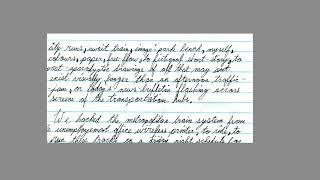 city runs, await train, image: park bench, myself,
colours, paper, free-flow, to fictional short story, to
the drawings of all that may not
exist visually longer than an afternoon traffic-
jam, or today's news bulletin flashing across
screen of the transportation hubs.
We hacked the metropolitan train system from
unemployment office wireless printer, to ride, to
tracks on a night schedule